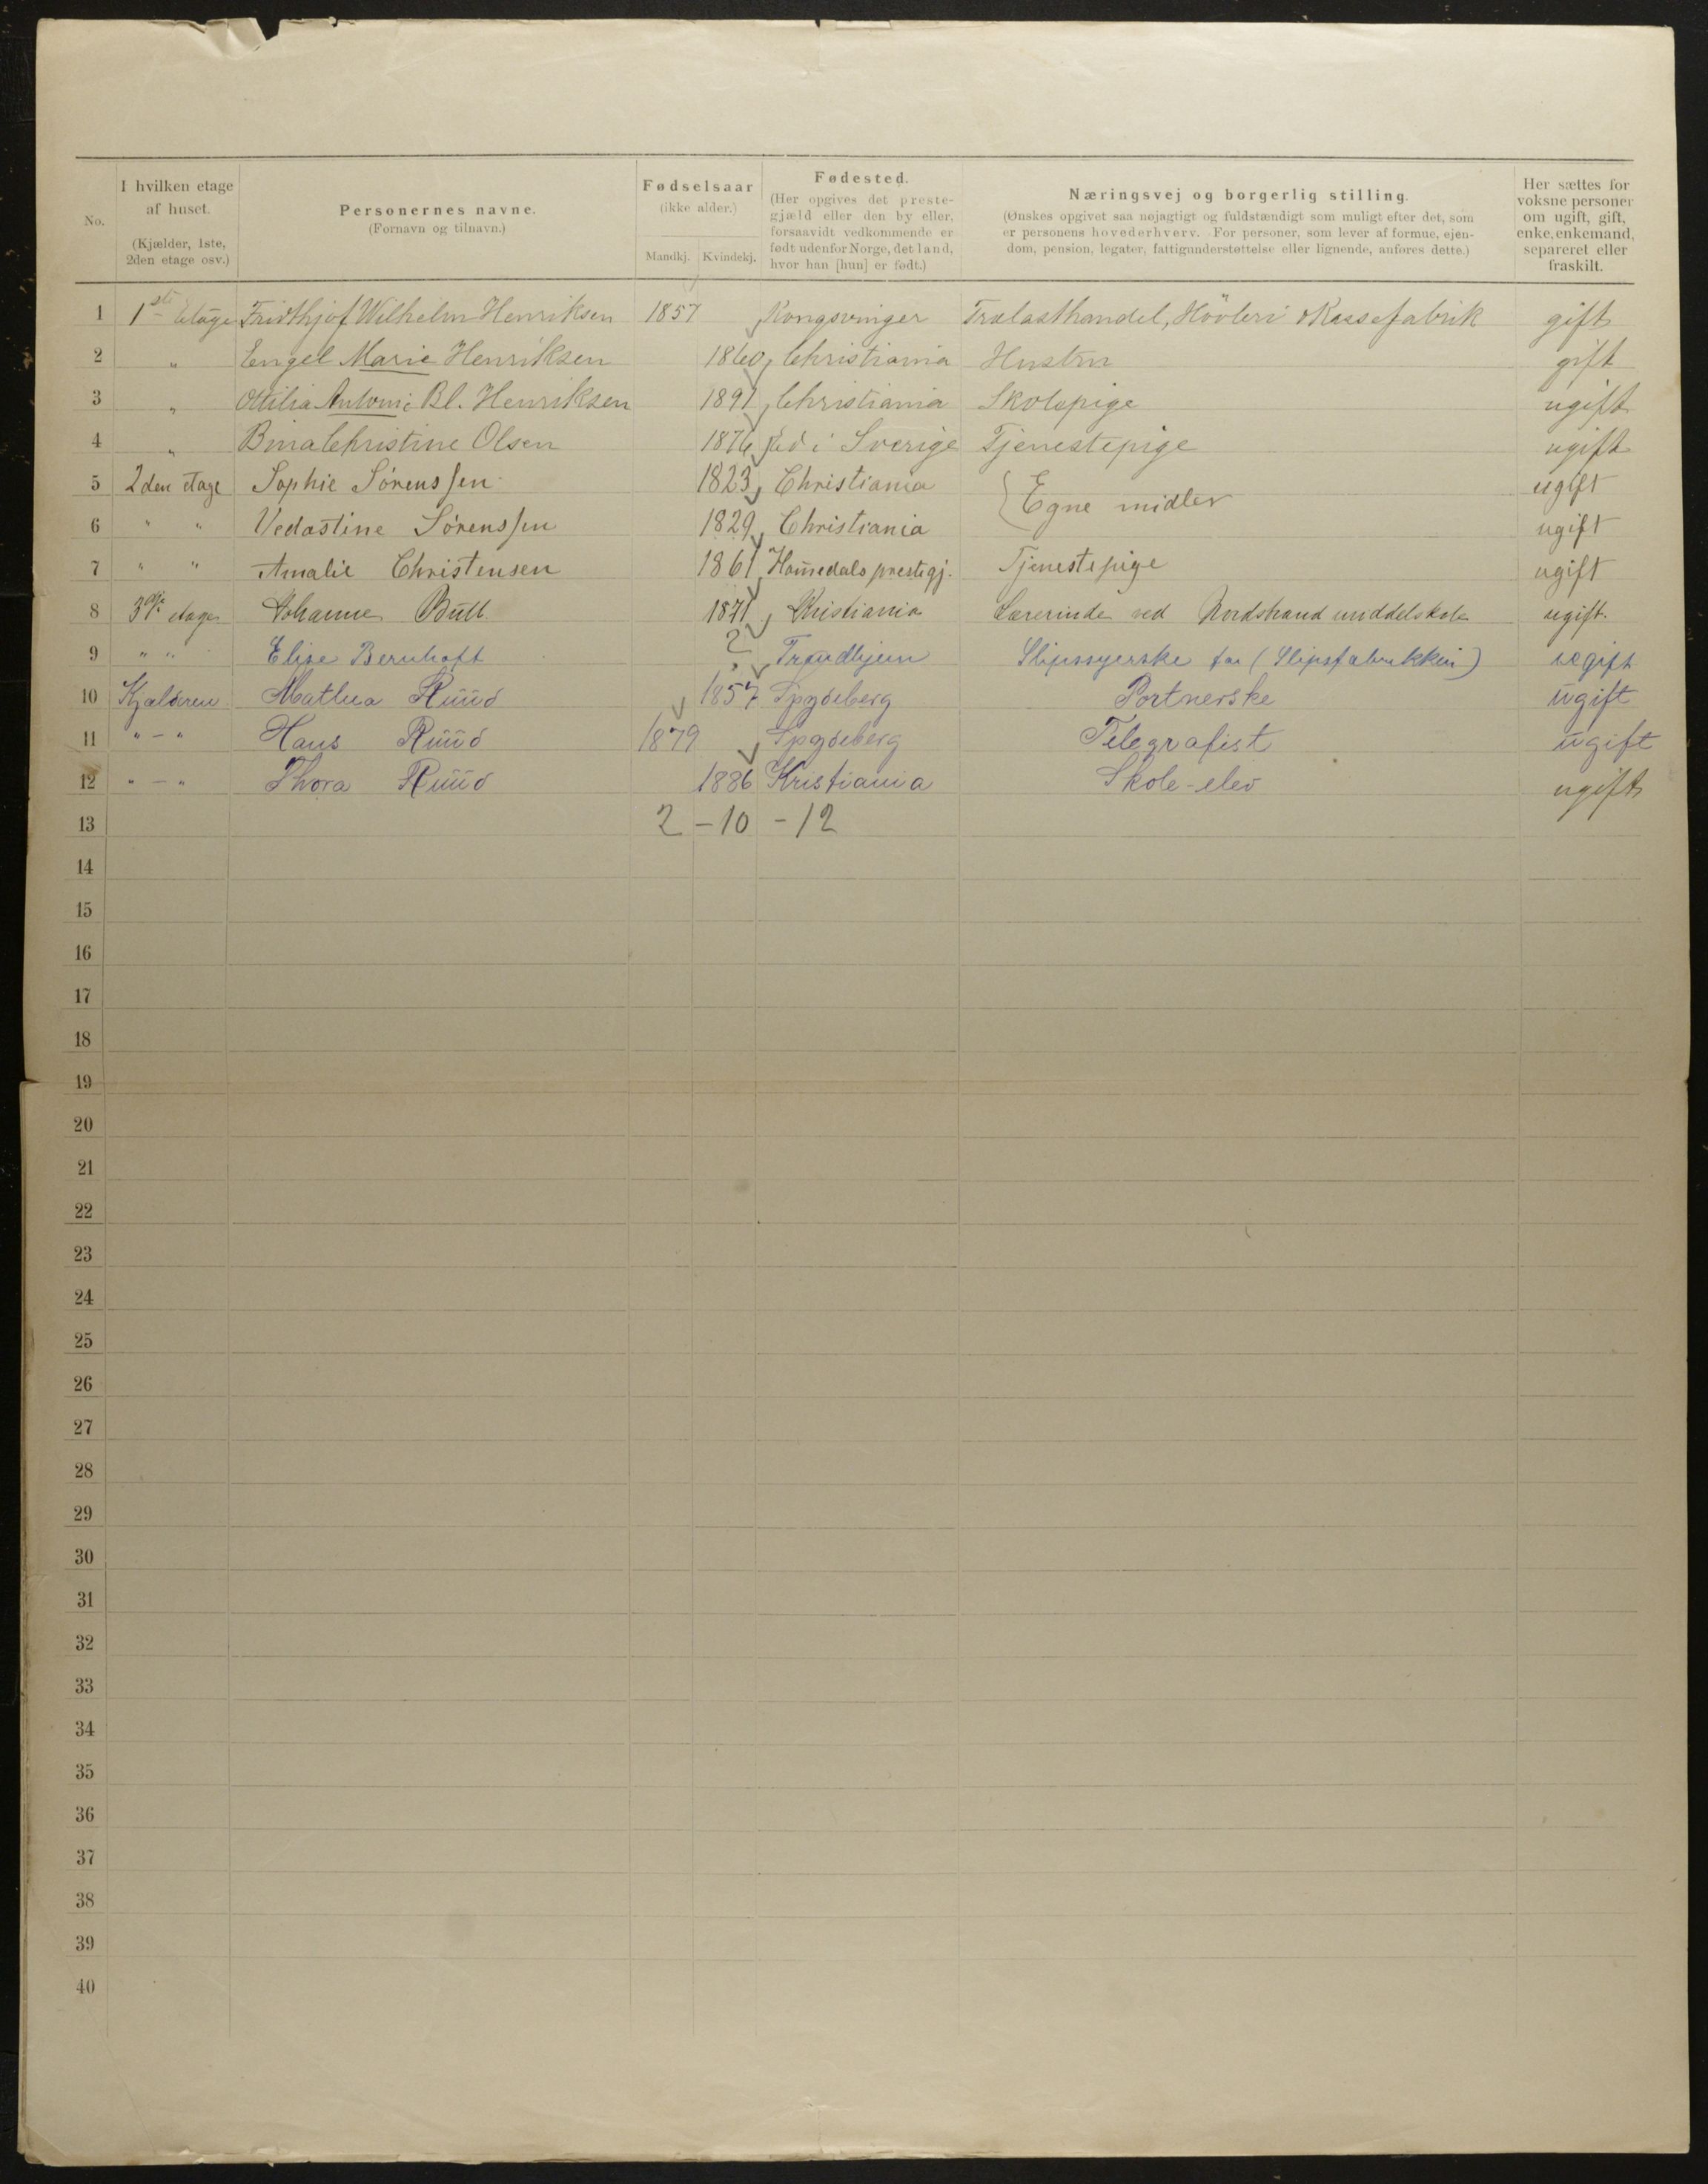 No.
I hvilken etage af huset.
(Kjælder, 1ste, 2den etage osv.)
Personernes navne.
(Fornavn og tilnavn.)
Fødselsaar
(ikke alder.)
Mandkj. Kvindekj.
Fødested.
(Her opgives det preste-
gjæld eller den by eller,
forsaavidt vedkommende er
født udenfor Norge, det land,
hvor han [hun] er født.)
Næringsvej og borgerlig stilling.
(Ønskes opgivet saa nøjagtigt og fuldstændigt som muligt efter det, som
er personens hovederhverv. For personer, som lever af formue, ejen-
dom, pension, legater, fattigunderstøttelse eller lignende, anføres dette.)
Her sættes for
voksne personer
om ugift, gift,
enke, enkemand,
separeret eller
fraskilt.
1 1ste Etage Fridthjof Wilhelm Henriksen 1857 Kongsvinger Trælasthandel, Hövleri & Kassefabrik gift
2 " Engel Marie Henriksen 1860 Christiania Hustru gift
3 " Ottilia Antonie Bl. Henriksen 1891 Christiania Skolepige ugift
4 " Bina Christine Olsen 1876 Fød i Sverige Tjenestepige ugift
5 2den etage Sophie Sørenssen 1823 Christiania { Egne midler ugift
6 " " Vedastine Sørenssen 1829 Christiania ugift
7 " " Amalie Christensen 1861 Hom̄edals prestegj. Tjenestepige ugift
8 3dje etage Johanne Bull 1871 Kristiania Lærerinde ved Nordstrand middelskole ugift.
9 " " Elise Bernhoft ? Trondhjem Slipssyerske for (Slipsfabrikken) ugift
10 Kjælderen Mathea Ruud 1857 Spydeberg Portnerske ugift
11 " - " Hans Ruud 1879 Spydeberg Telegrafist ugift
12 " - " Thora Ruud 1886 Kristiania Skole-elev ugift
13 2 - 10 - 12
14
15
16
17
18
19
20
21
22
23
24
25
26
27
28
29
30
31
32
33
34
35
36
37
38
39
40